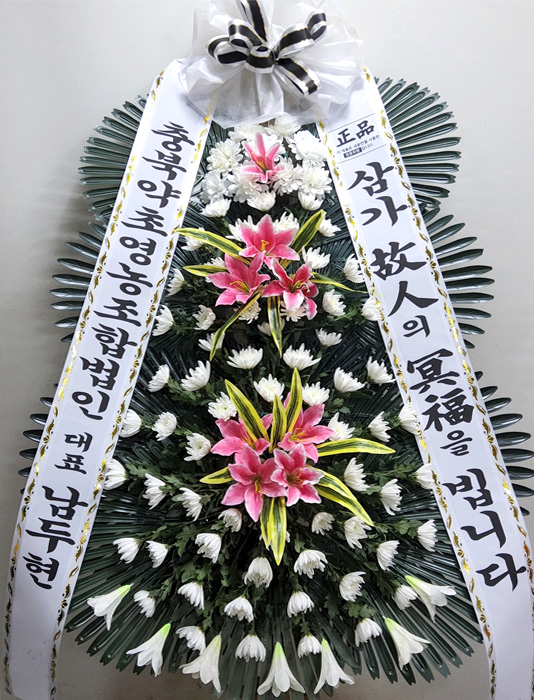 충북약초영농조합법인 대표 남두현
正品
삼가 故人의 冥福을 빕니다